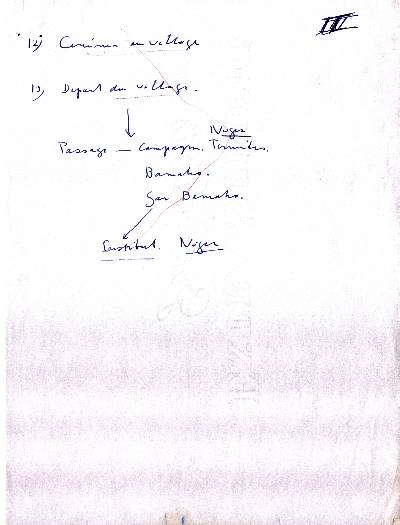 III
12) Cinéma au village
13) Depart du village.
Niger
Passage — Campagn. Termites.
Bamako.
Gar Bamako.
Niger